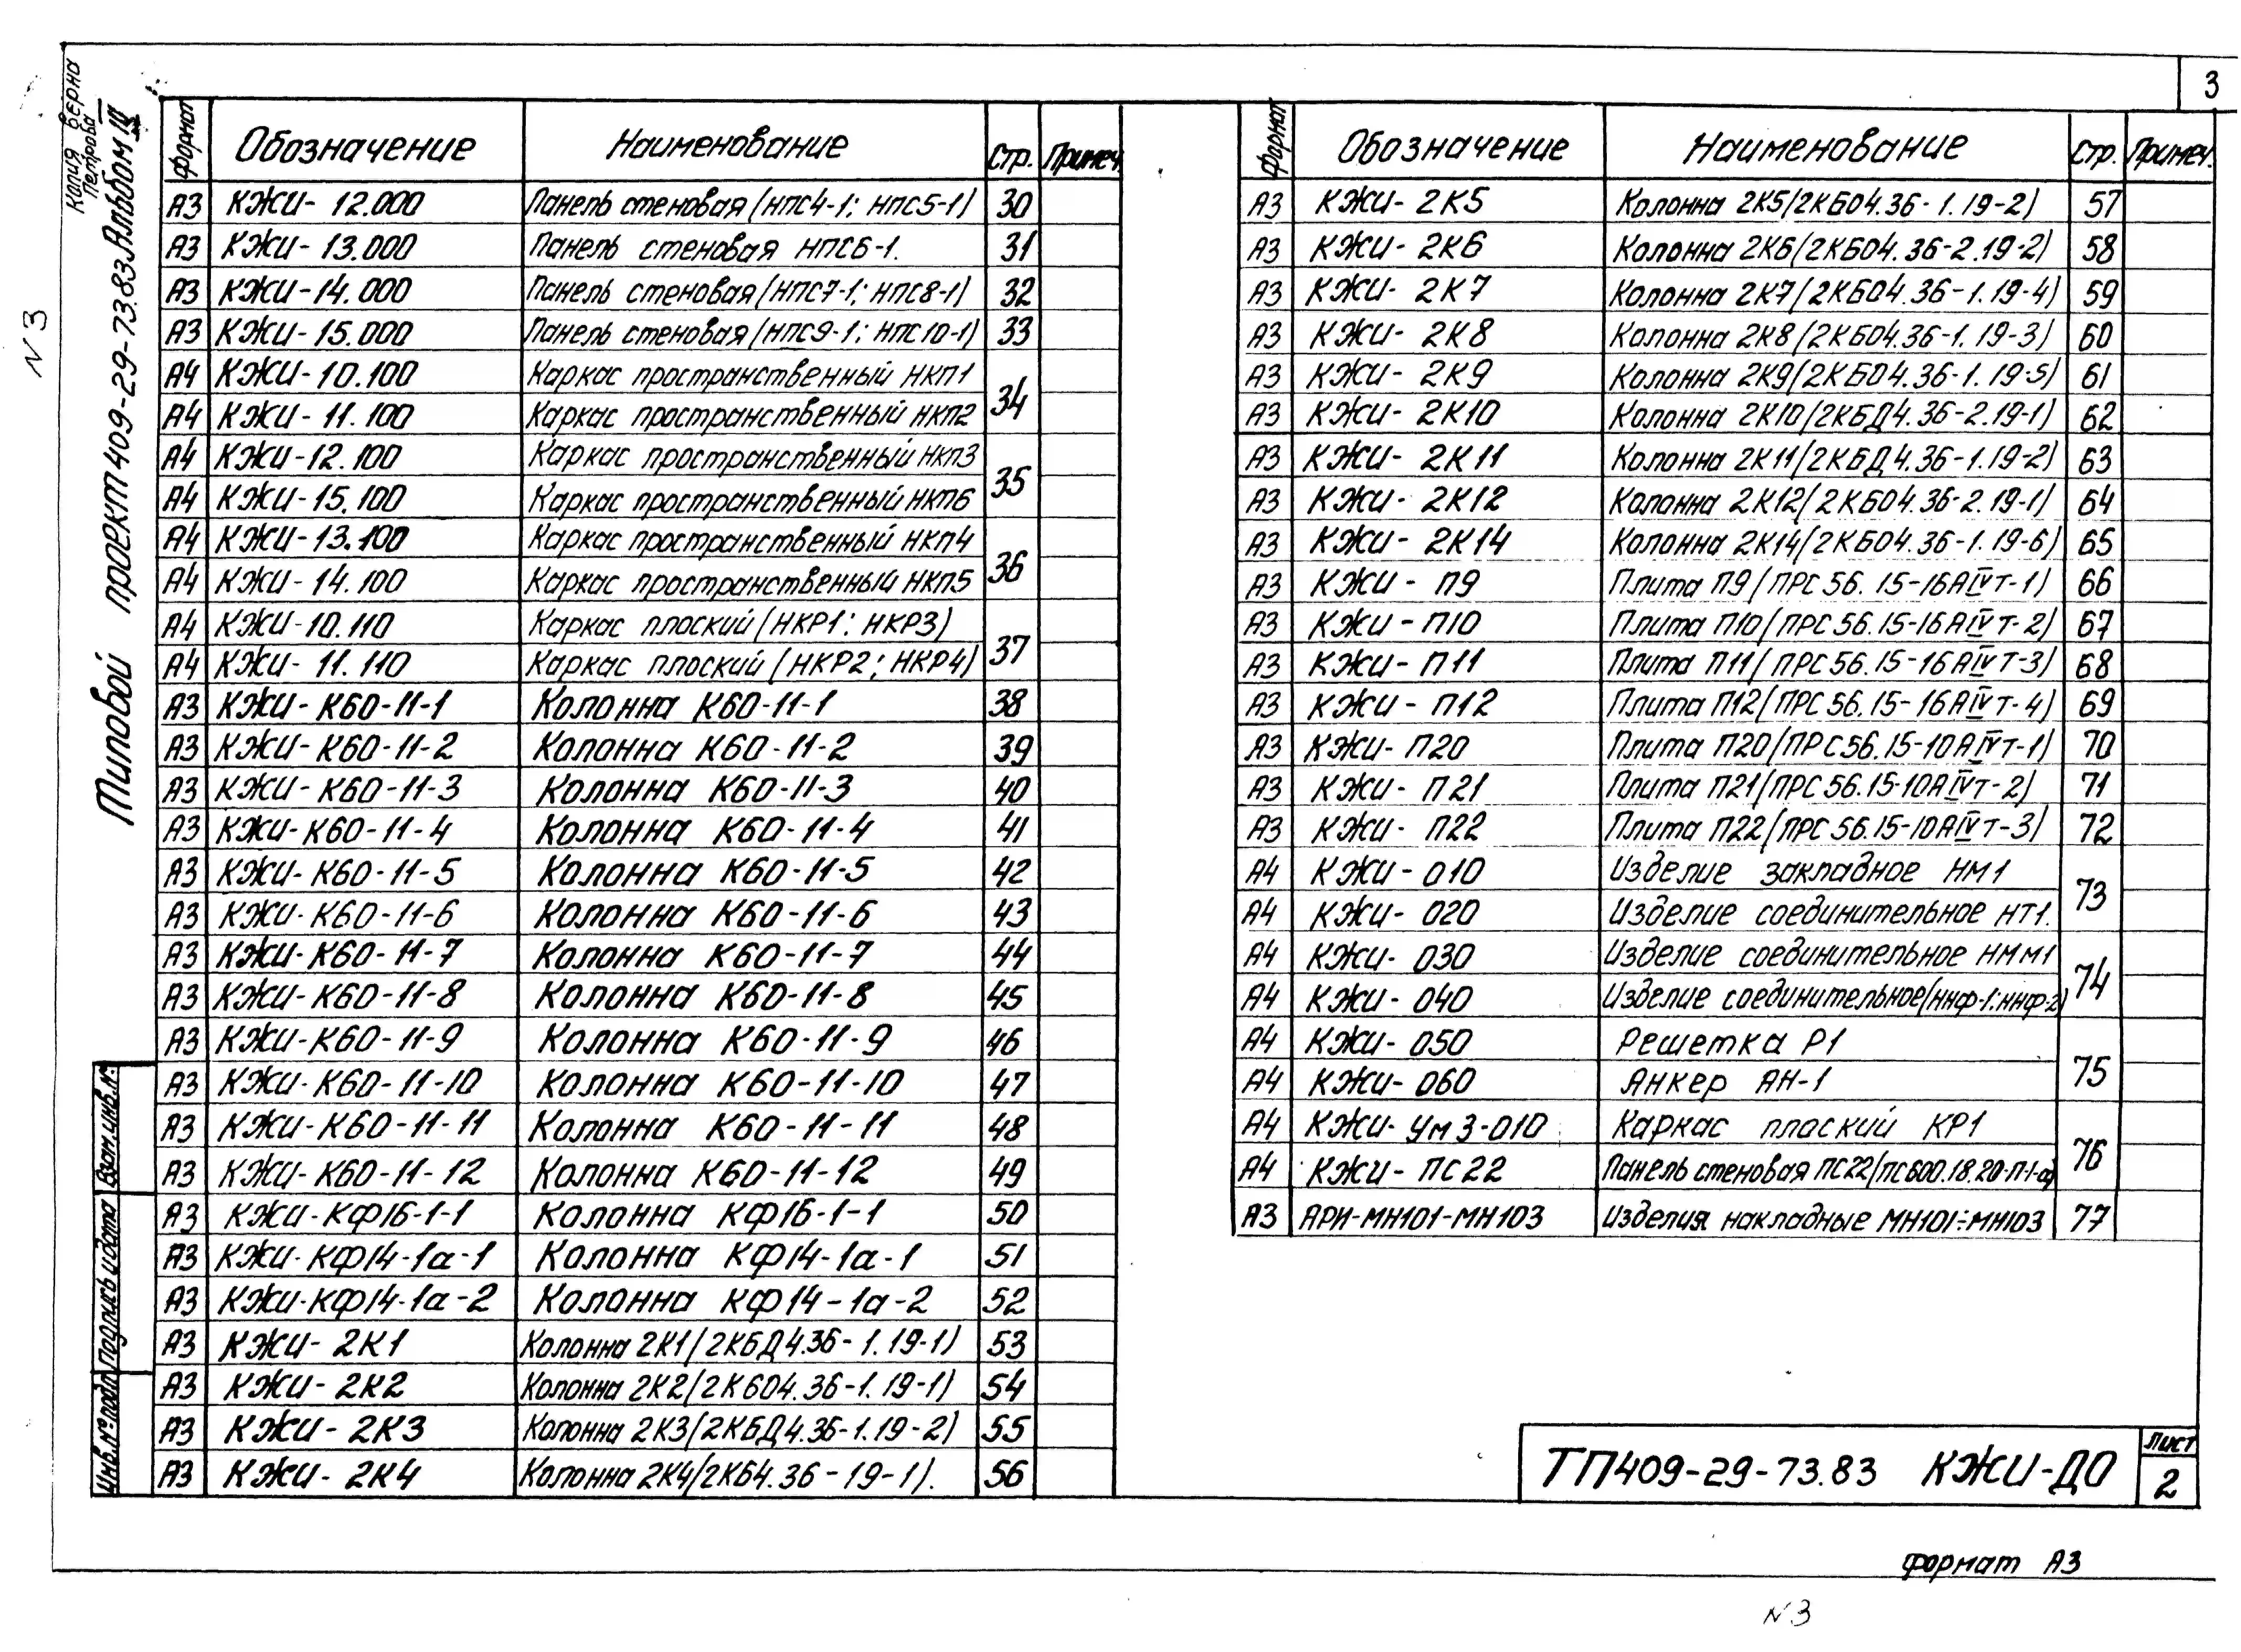 3
Копия верна
Петрова
Типовой проект 409-29-73.83 Альбом IV
N 3
формат Обозначение Наименование Стр. Примеч.
А3 КЖИ-12.000 Панель стеновая (НПС4-1; НПС5-1) 30
А3 КЖИ-13.000 Панель стеновая НПС6-1. 31
А3 КЖИ-14.000 Панель стеновая (НПС7-1; НПС8-1) 32
А3 КЖИ-15.000 Панель стеновая (НПС9-1; НПС10-1) 33
А4 КЖИ-10.100 Каркас пространственный НКП1 34
А4 КЖИ-11.100 Каркас пространственный НКП2
А4 КЖИ-12.100 Каркас пространственный НКП3 35
А4 КЖИ-15.100 Каркас пространственный НКП6
А4 КЖИ-13.100 Каркас пространственный НКП4 36
А4 КЖИ-14.100 Каркас пространственный НКП5
А4 КЖИ-10.110 Каркас плоский (НКР1; НКР3) 37
А4 КЖИ-11.110 Каркас плоский (НКР2; НКР4)
А3 КЖИ-К60-11-1 Колонна К60-11-1 38
А3 КЖИ-К60-11-2 Колонна К60-11-2 39
А3 КЖИ-К60-11-3 Колонна К60-11-3 40
А3 КЖИ-К60-11-4 Колонна К60-11-4 41
А3 КЖИ-К60-11-5 Колонна К60-11-5 42
А3 КЖИ-К60-11-6 Колонна К60-11-6 43
А3 КЖИ-К60-11-7 Колонна К60-11-7 44
А3 КЖИ-К60-11-8 Колонна К60-11-8 45
А3 КЖИ-К60-11-9 Колонна К60-11-9 46
А3 КЖИ-К60-11-10 Колонна К60-11-10 47
А3 КЖИ-К60-11-11 Колонна К60-11-11 48
А3 КЖИ-К60-11-12 Колонна К60-11-12 49
А3 КЖИ-КФ16-1-1 Колонна КФ16-1-1 50
А3 КЖИ-КФ14-1а-1 Колонна КФ14-1а-1 51
А3 КЖИ-КФ14-1а-2 Колонна КФ14-1а-2 52
А3 КЖИ-2К1 Колонна 2К1(2КБД4.36-1.19-1) 53
А3 КЖИ-2К2 Колонна 2К2(2КБО4.36-1.19-1) 54
А3 КЖИ-2К3 Колонна 2К3(2КБД4.36-1.19-2) 55
А3 КЖИ-2К4 Колонна 2К4(2КБ4.36-19-1). 56
формат Обозначение Наименование Стр. Примеч.
А3 КЖИ-2К5 Колонна 2К5(2КБО4.36-1.19-2) 57
А3 КЖИ-2К6 Колонна 2К6(2КБО4.36-2.19-2) 58
А3 КЖИ-2К7 Колонна 2К7(2КБО4.36-1.19-4) 59
А3 КЖИ-2К8 Колонна 2К8(2КБО4.36-1.19-3) 60
А3 КЖИ-2К9 Колонна 2К9(2КБО4.36-1.19-5) 61
А3 КЖИ-2К10 Колонна 2К10(2КБД4.36-2.19-1) 62
А3 КЖИ-2К11 Колонна 2К11(2КБД4.36-1.19-2) 63
А3 КЖИ-2К12 Колонна 2К12(2КБО4.36-2.19-1) 64
А3 КЖИ-2К14 Колонна 2К14(2КБО4.36-1.19-6) 65
А3 КЖИ-П9 Плита П9(ПРС56.15-16АIVТ-1) 66
А3 КЖИ-П10 Плита П10(ПРС56.15-16АIVТ-2) 67
А3 КЖИ-П11 Плита П11(ПРС56.15-16АIVТ-3) 68
А3 КЖИ-П12 Плита П12(ПРС56.15-16АIVТ-4) 69
А3 КЖИ-П20 Плита П20(ПРС56.15-10АIVТ-1) 70
А3 КЖИ-П21 Плита П21(ПРС56.15-10АIVТ-2) 71
А3 КЖИ-П22 Плита П22(ПРС56.15-10АIVТ-3) 72
А4 КЖИ-010 Изделие закладное НМ1 73
А4 КЖИ-020 Изделие соединительное НТ1.
А4 КЖИ-030 Изделие соединительное НММ1 74
А4 КЖИ-040 Изделие соединительное(ННФ-1; ННФ-2)
А4 КЖИ-050 Решетка Р1 75
А4 КЖИ-060 Анкер АН-1
А4 КЖИ-УМ3-010 Каркас плоский КР1 76
А4 КЖИ-ПС22 Панель стеновая ПС22(ПС600.18.20-П-1-а)
А3 АРИ-МН101-МН103 Изделия накладные МН101÷МН103 77
Взам.инв.№
Подпись и дата
Инв.№ подл.
ТП409-29-73.83 КЖИ-ДО
Лист
2
формат А3
N 3